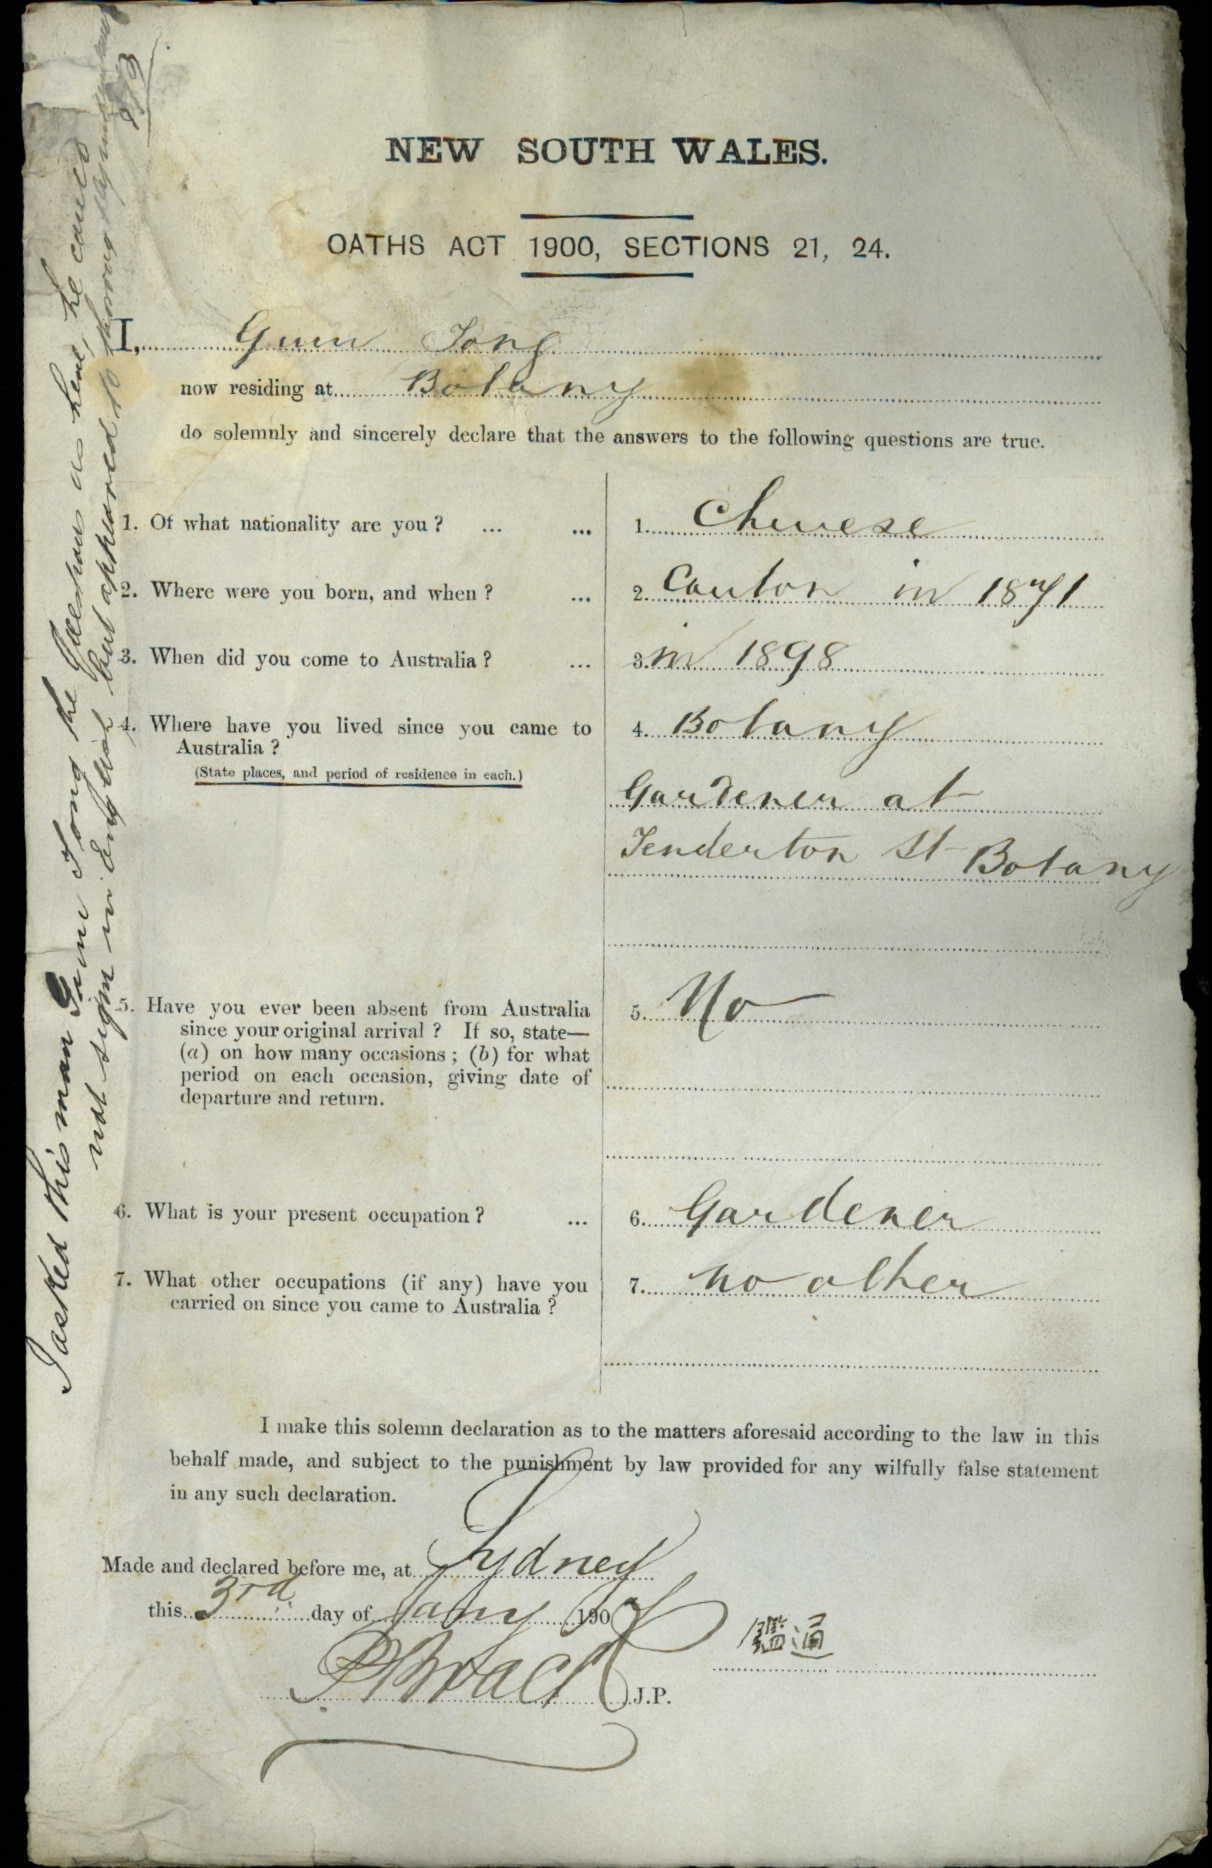 NEW SOUTH WALES.
OATHS ACT 1900, SECTIONS 21, 24.
I, Gum Tong
now residing at Botany
do solemnly and sincerely declare that the answers to the following questions are true.
1. Of what nationality are you ? ... ... 1. Chinese
2. Where were you born, and when ? ... 2. Canton in 1871
3. When did you come to Australia ? ... 3. in 1898
4. Where have you lived since you came to 4. Botany
Australia ?
(State places, and period of residence in each.)
Gardener at
Tenderton St Botany
5. Have you ever been absent from Australia 5. No
since your original arrival ? If so, state—
(a) on how many occasions ; (b) for what
period on each occasion, giving date of
departure and return.
6. What is your present occupation ? ... 6. Gardener
7. What other occupations (if any) have you 7. no other
carried on since you came to Australia ?
I make this solemn declaration as to the matters aforesaid according to the law in this
behalf made, and subject to the punishment by law provided for any wilfully false statement
in any such declaration.
Made and declared before me, at Sydney
this 3rd day of Jany 1907
鑑通
J.P.
I asked this man Gum Tong the Questions as here, he could
not sign in English but appeared to